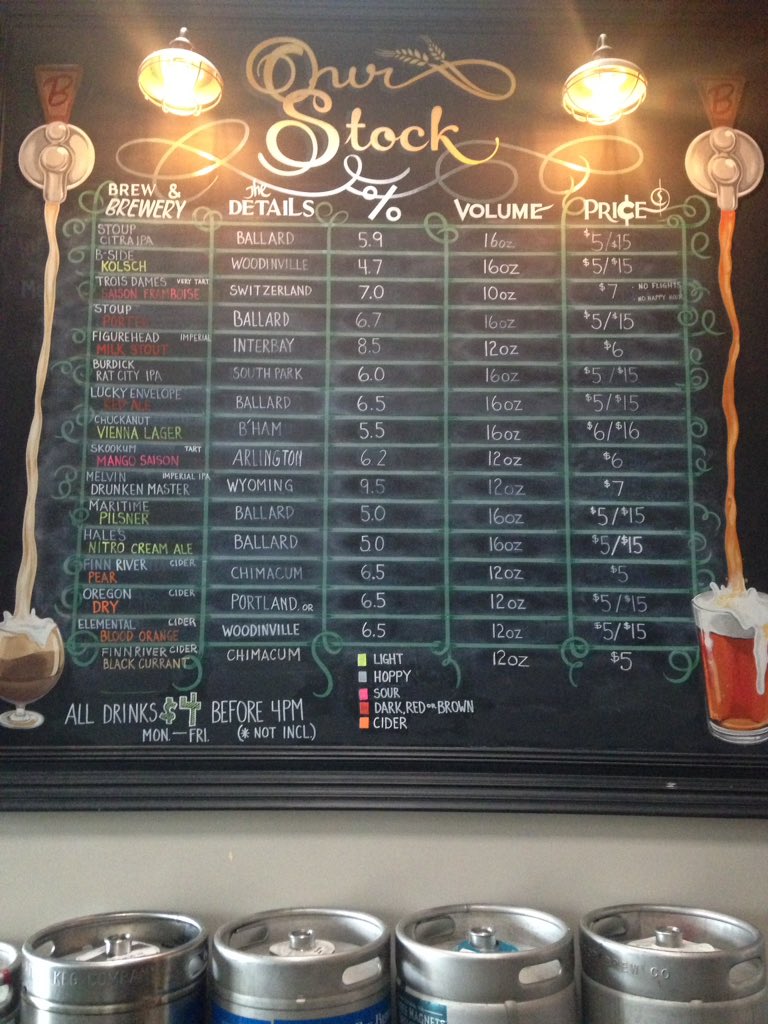 B
B
Our
Stock
BREW & BREWERY The DETAILS % VOLUME PRI¢E $
STOUP CITRA IPA BALLARD 5.9 16oz $5/$15
B-SIDE KOLSCH WOODINVILLE 4.7 16oz $5/$15
TROIS DAMES VERY TART SAISON FRAMBOISE SWITZERLAND 7.0 10oz $7 - NO FLIGHTS - NO HAPPY HOUR
STOUP PORTER BALLARD 6.7 16oz $5/$15
FIGUREHEAD IMPERIAL MILK STOUT INTERBAY 8.5 12oz $6
BURDICK RAT CITY IPA SOUTH PARK 6.0 16oz $5/$15
LUCKY ENVELOPE RED ALE BALLARD 6.5 16oz $5/$15
CHUCKANUT VIENNA LAGER B'HAM 5.5 16oz $6/$16
SKOOKUM TART MANGO SAISON ARLINGTON 6.2 12oz $6
MELVIN IMPERIAL IPA DRUNKEN MASTER WYOMING 9.5 12oz $7
MARITIME PILSNER BALLARD 5.0 16oz $5/$15
HALE'S NITRO CREAM ALE BALLARD 5.0 16oz $5/$15
FINN RIVER CIDER PEAR CHIMACUM 6.5 12oz $5
OREGON CIDER DRY PORTLAND, OR 6.5 12oz $5/$15
ELEMENTAL CIDER BLOOD ORANGE WOODINVILLE 6.5 12oz $5/$15
FINN RIVER CIDER BLACK CURRANT CHIMACUM 12oz $5
LIGHT
HOPPY
SOUR
DARK, RED OR BROWN
CIDER
ALL DRINKS $4 BEFORE 4PM
MON.—FRI. (* NOT INCL.)
KEG COMPANY
BREW CO
MAGNETS